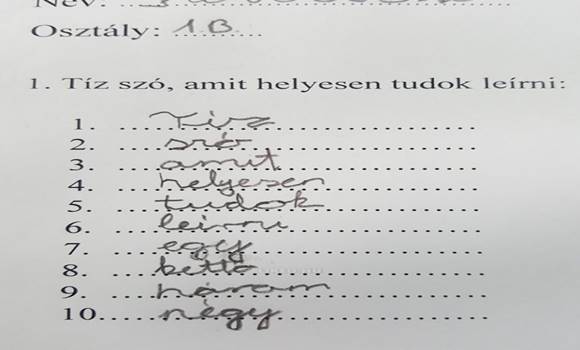 Név:
Osztály: 1B
1. Tíz szó, amit helyesen tudok leírni:
1. Tiz
2. szó
3. amit
4. helyesen
5. tudok
6. leirni
7. egy
8. kettő
9. három
10. négy